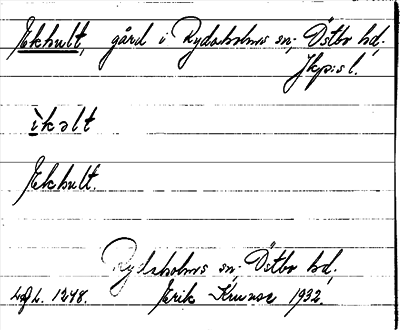 Ekhult, gård i Rydaholms sn; Östbo hd;
Jkp:s l.
ìkəlt
Ekhult.
Rydaholms sn; Östbo hd;
1248. Erik Kruuse 1932.